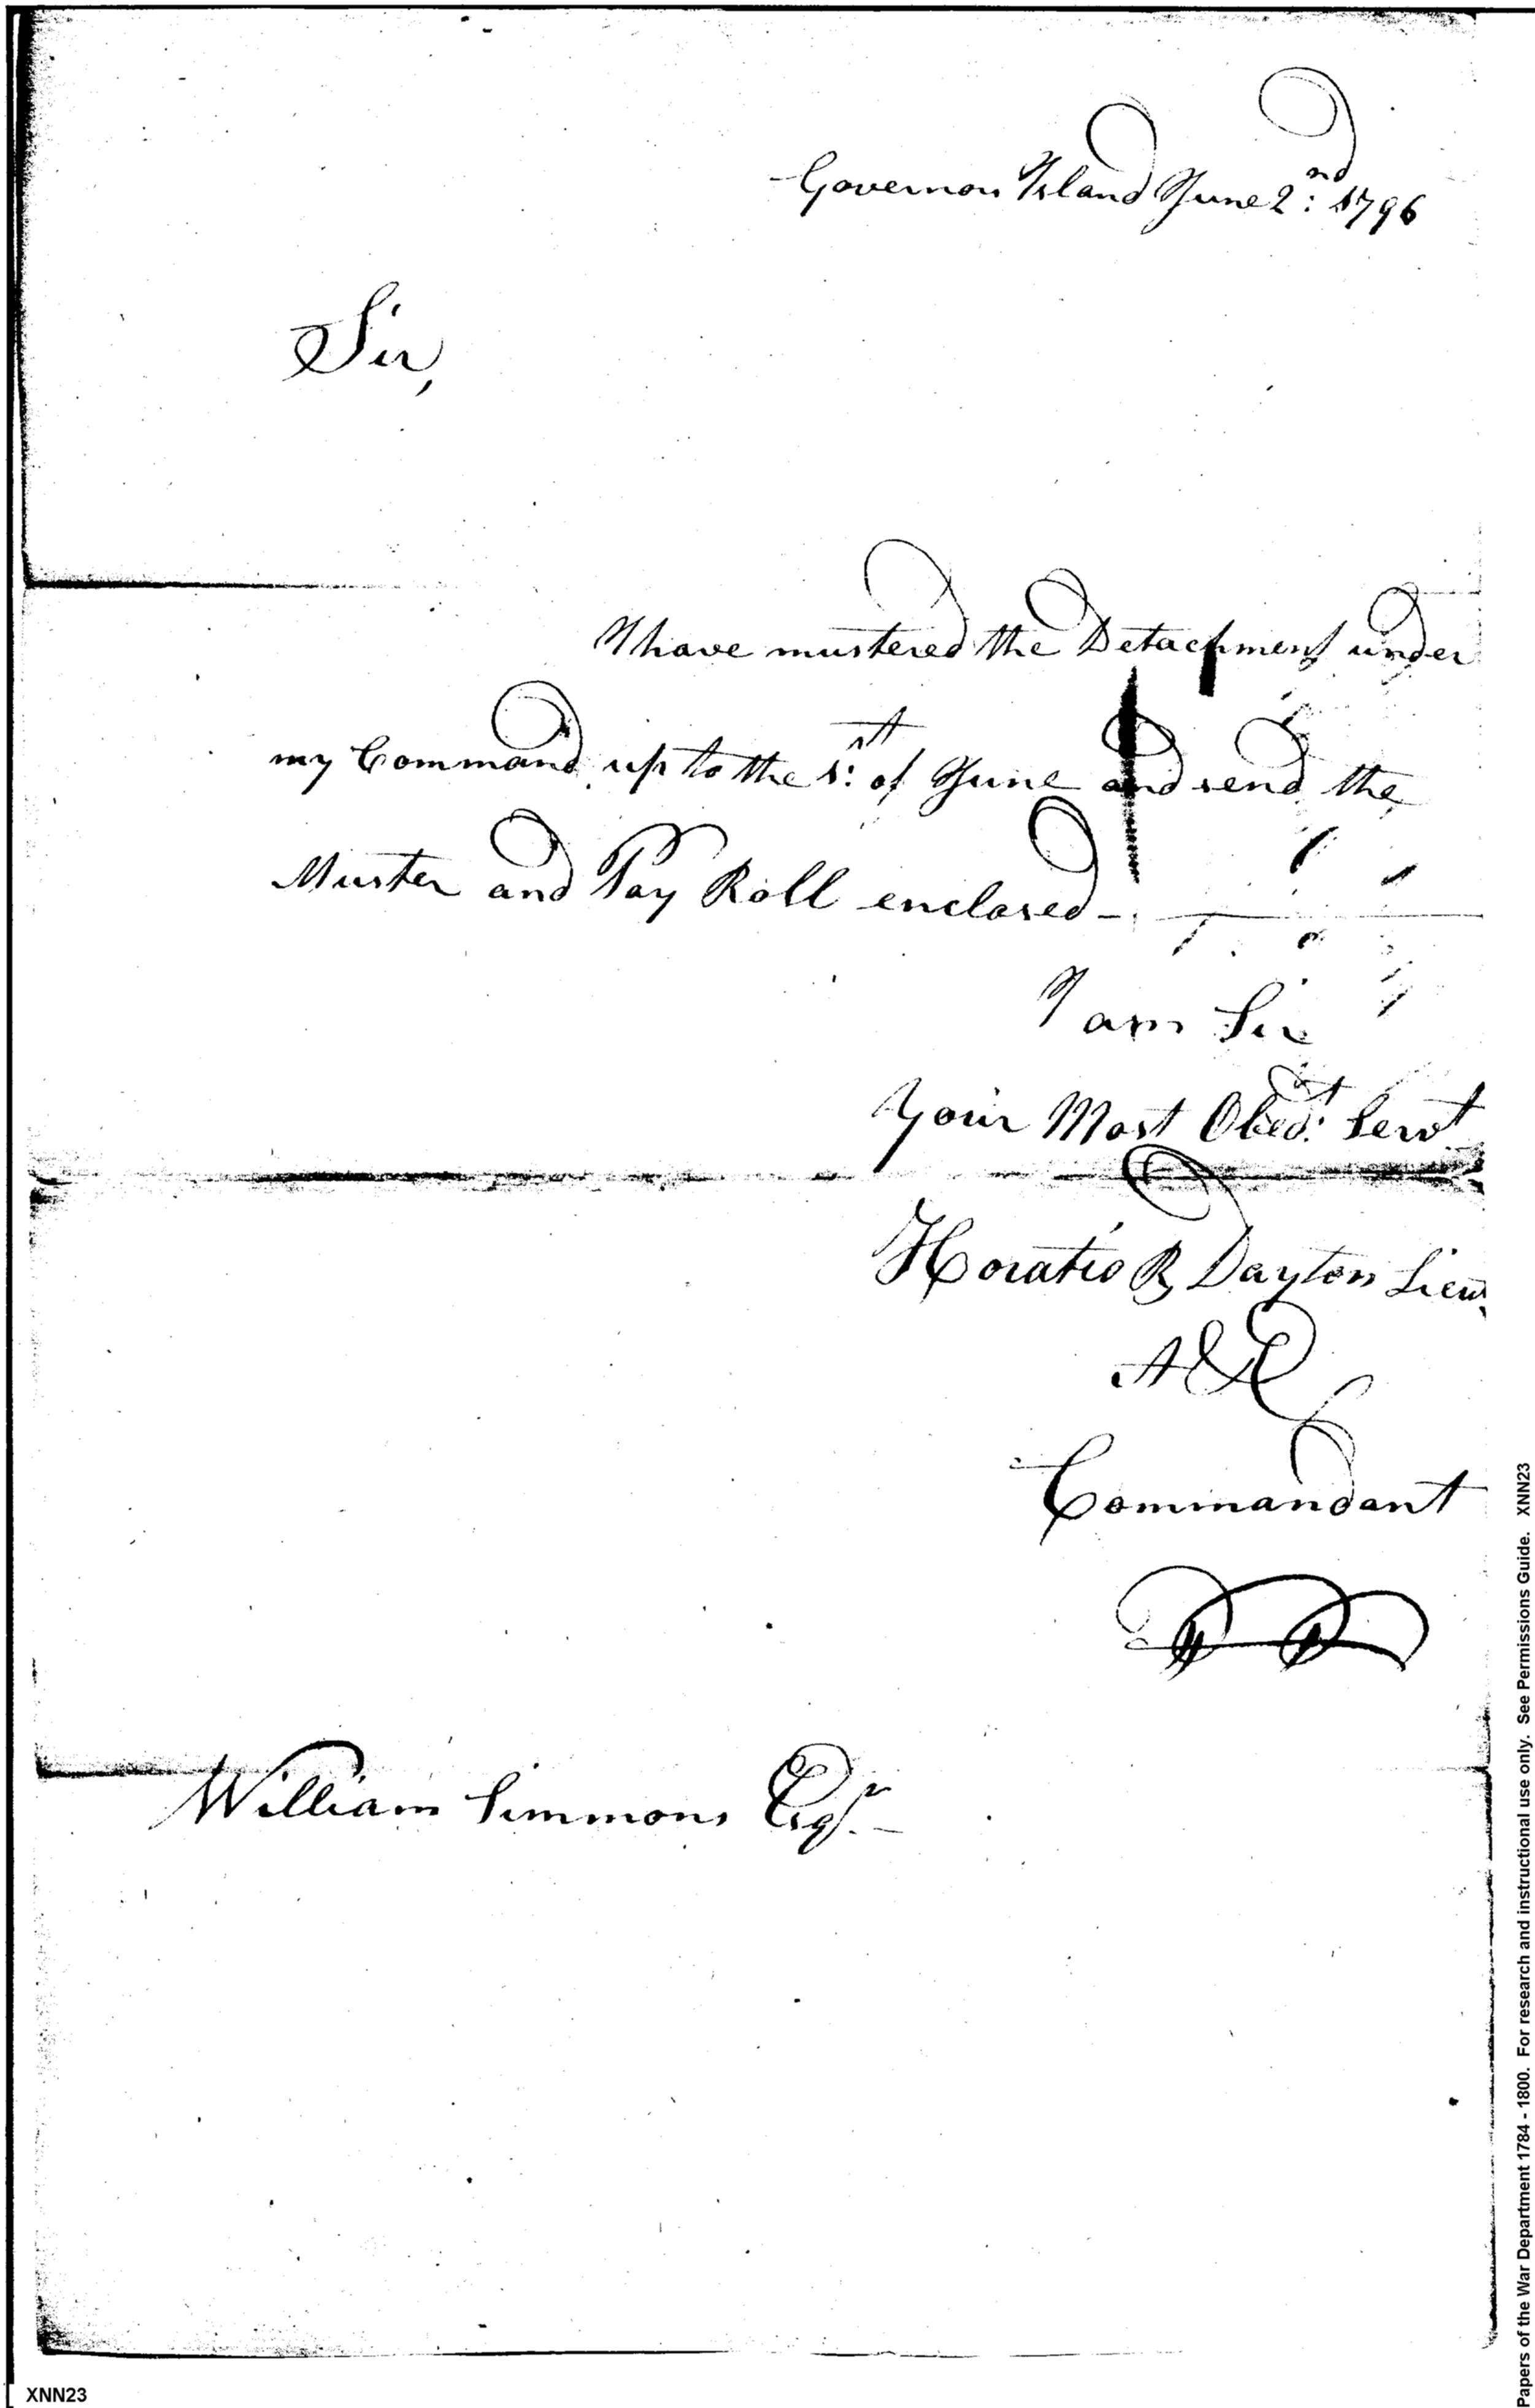 Governors Island June 2:nd 1796
Sir,
I have mustered the Detachment under
my Command, up to the 1:st of June and send the
Muster and Pay Roll enclosed —
I am Sir
Your Most Obed:t Servt
Horatio R Dayton Lieu
A & E
Commandant
William Simmons Esqr. —
XNN23
Papers of the War Department 1784 - 1800. For research and instructional use only. See Permissions Guide. XNN23